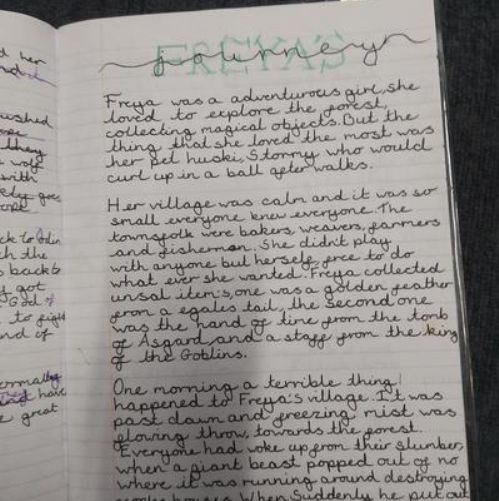 FREYA'S
journey
Freya was a adventurous girl, she
loved to explore the forest,
collecting magical objects. But the
thing that she loved the most was
her pet huski, Stormy who would
curl up in a ball after walks.
Her village was calm and it was so
small everyone knew everyone. The
townsfolk were bakers, weavers, farmers
and fisherman. She didn't play
with anyone but herself, free to do
what ever she wanted. Freya collected
unsal item's, one was a golden feather
from a egales tail, the second one
was the hand of time from the tomb
of Asgard and a staff from the king
of the Goblins.
One morning a terrible thing
happened to Freya's village. It was
past dawn and freezing mist was
flowing throw, towards the forest.
Everyone had woke up from thir slumber,
when a giant beast popped out of no
where it was running around destroying
When Suddenly he put out
d her
ushed
they
wolf
with
ck to Odin
ch the
back to
got
God
to fight
nd of
ormally
have
great